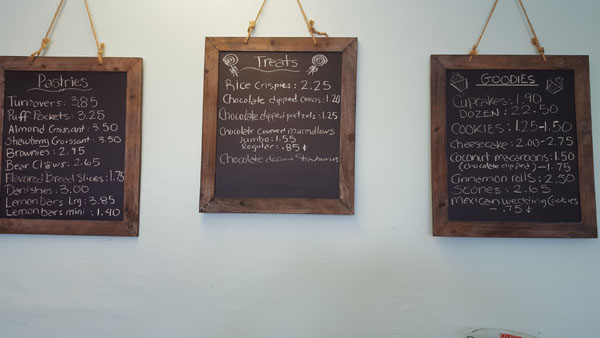 Pastries
Turnovers: 3.85
Puff Pockets: 3.25
Almond Croissant: 3.50
Strawberry Croissant: 3.50
Brownies: 2.95
Bear Claws: 2.65
Flavored Bread Slices: 1.75
Danishes: 3.00
Lemon bars Lrg: 3.85
Lemon bars mini: 1.40
Treats
Rice Crispies: 2.25
Chocolate dipped oreos: 1.20
Chocolate dipped pretzels: 1.25
Chocolate covered
Jumbo: 1.55
Regular: .85¢
Chocolate Strawberries
GOODIES
Cupcakes: 1.90
DOZEN: 22.50
COOKIES: 1.25-1.50
Cheesecake: 2.00-2.75
Coconut macaroons: 1.50
(chocolate dipped) - 1.75
Cinnamon rolls: 2.50
Scones: 2.65
Mexican wedding Cookies
- .75¢